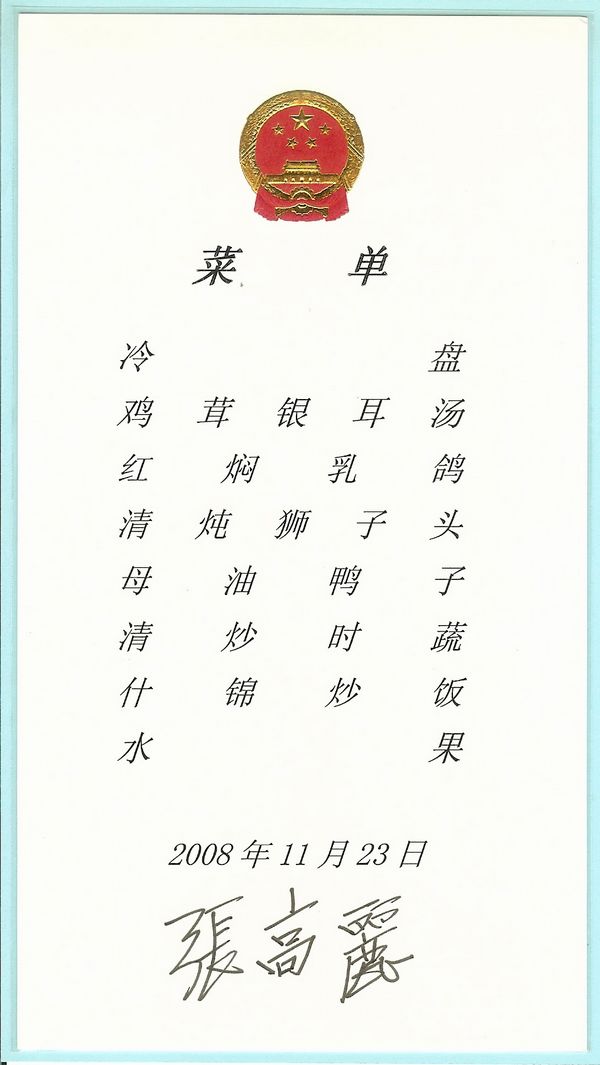 菜单
冷盘
鸡茸银耳汤
红焖乳鸽
清炖狮子头
母油鸭子
清炒时蔬
什锦炒饭
水果
2008年11月23日
張高麗